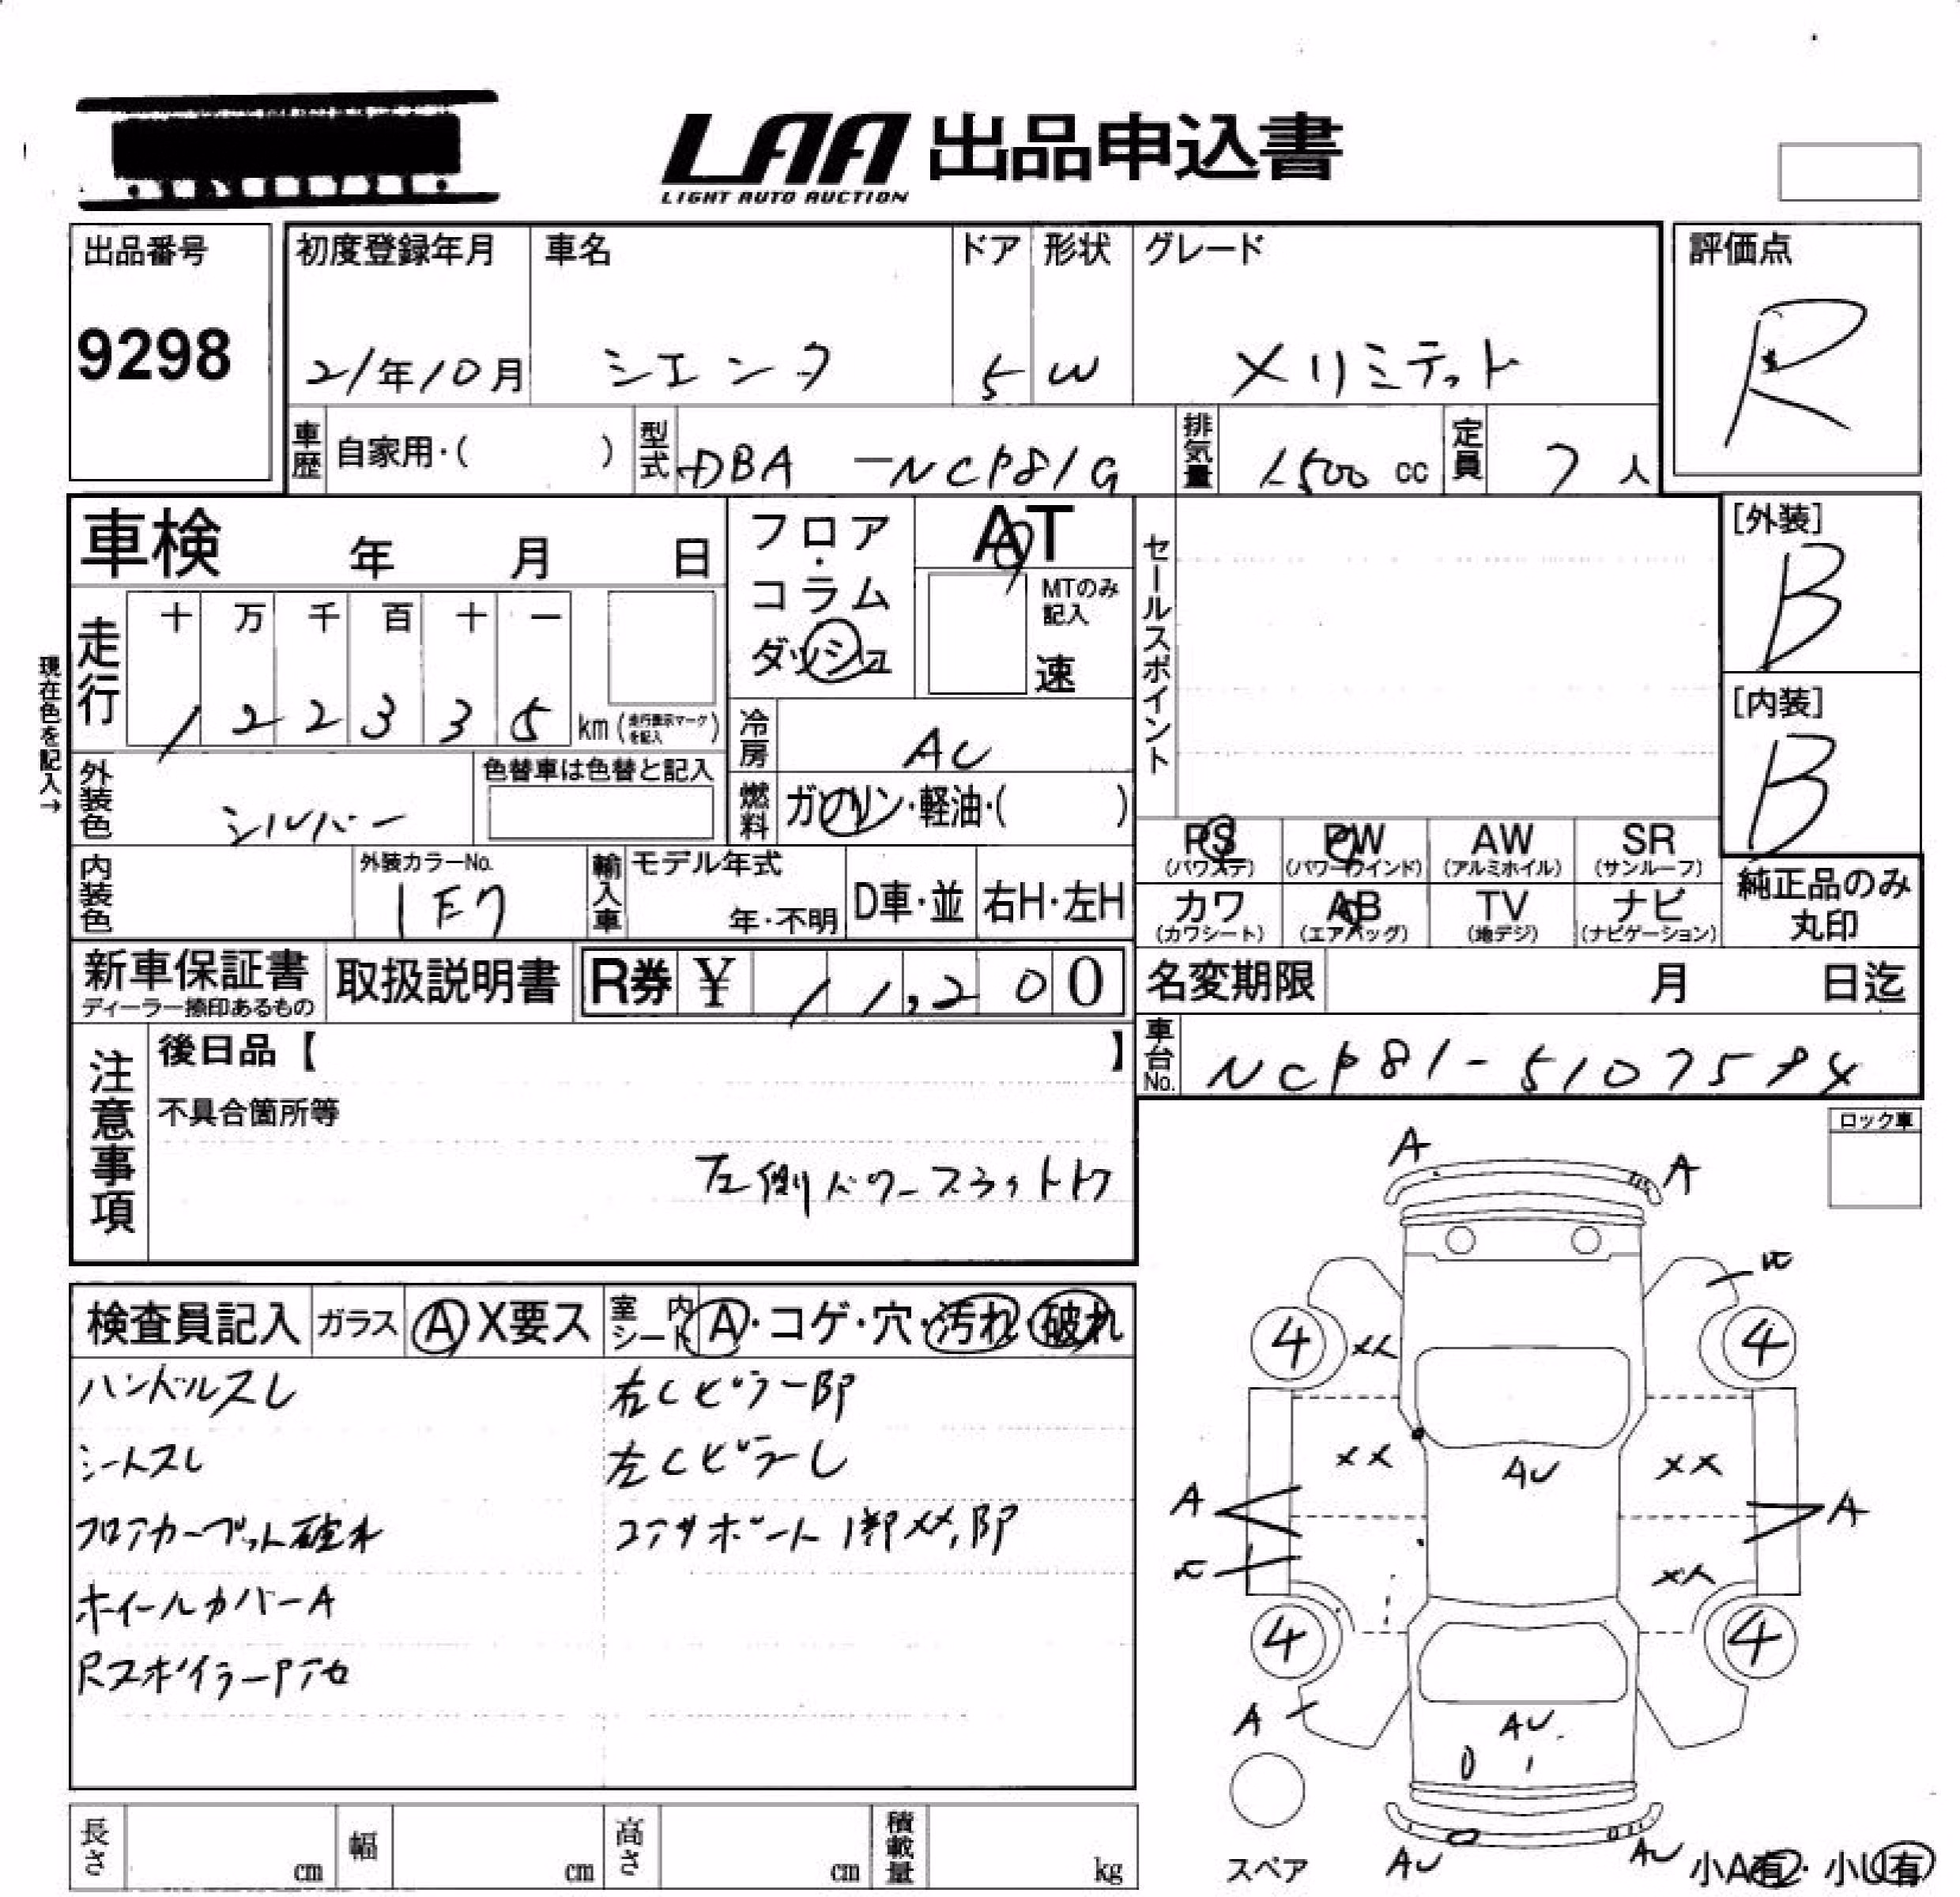 LAA 出品申込書
LIGHT AUTO AUCTION
出品番号
9298
初度登録年月
21年10月
車名
シエンタ
ドア
5
形状
W
グレード
Xリミテット
評価点
R
車歴
自家用・( )
型式
DBA -NCP81G
排気量
1500 cc
定員
7 人
車検 年 月 日
フロア・コラム
ダッシュ
AT
MTのみ
記入
速
セールスポイント
[外装]
B
[内装]
B
現在色を記入→
走行
十 万 千 百 十 一
1 2 2 3 3 5
km (走行表示マークを記入)
冷房
AC
外装色
シルバー
色替車は色替と記入
燃料
ガソリン・軽油・( )
PS
(パワステ)
PW
(パワーウインド)
AW
(アルミホイル)
SR
(サンルーフ)
カワ
(カワシート)
AB
(エアバッグ)
TV
(地デジ)
ナビ
(ナビゲーション)
純正品のみ
丸印
内装色
外装カラーNo.
1E7
輸入車
モデル年式
年・不明
D車・並
右H・左H
新車保証書
ディーラー捺印あるもの
取扱説明書
R券 ¥ 11,200
名変期限 月 日迄
車台No.
NCP81-5107594
注意事項
後日品【 】
不具合箇所等
左側パワースライドドア
ロック車
検査員記入
ガラス
A X要ス
室内
シート
A・コゲ・穴・汚れ・破れ
ハンドルスレ
シートスレ
フロアカーペット破れ
ホイールカバーA
Rスポイラー
右Cピラー
左Cピラー
コアサポート
A
A
4
XX
4
XX
AU
XX
A
A
XX
4
4
A
AU
AU
AU
スペア
小A有・小U有
長さ cm
幅 cm
高さ cm
積載量 kg